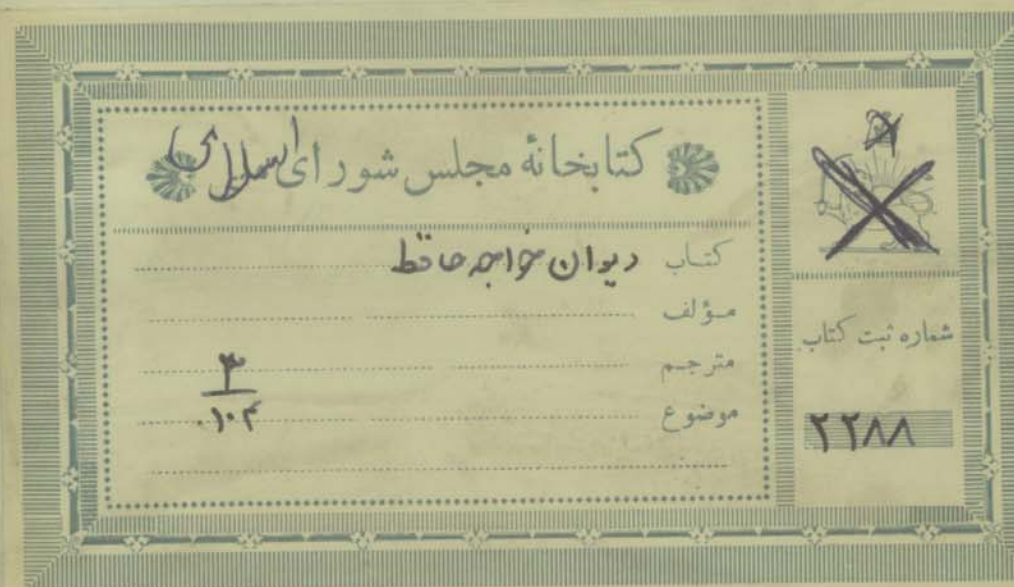 کتابخانهٔ مجلس شورای اسلامی
کتاب دیوان خواجه حافظ
مؤلف
مترجم
موضوع
۳
۱۰۴
شماره ثبت کتاب
۲۲۸۸